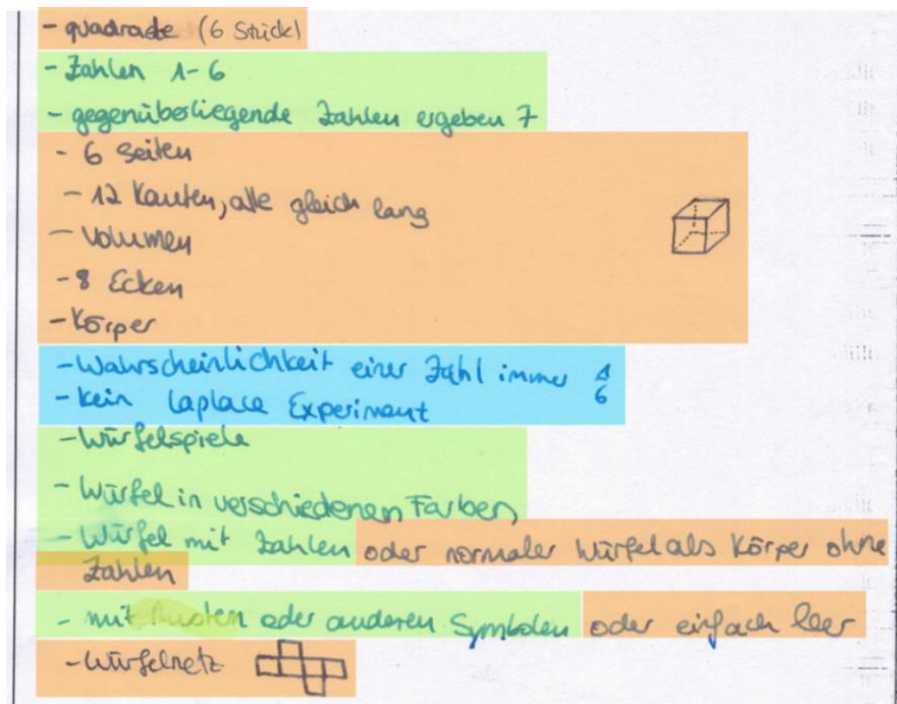 - quadrate (6 Stück)
- Zahlen 1-6
- gegenüberliegende Zahlen ergeben 7
- 6 Seiten
- 12 Kanten, alle gleich lang
- Volumen
- 8 Ecken
- Körper
- Wahrscheinlichkeit einer Zahl immer 1/6
- kein Laplace Experiment
- Würfelspiele
- Würfel in verschiedenen Farben
- Würfel mit Zahlen oder normaler Würfel als Körper ohne
Zahlen
- mit Punkten oder anderen Symbolen oder einfach leer
- Würfelnetz